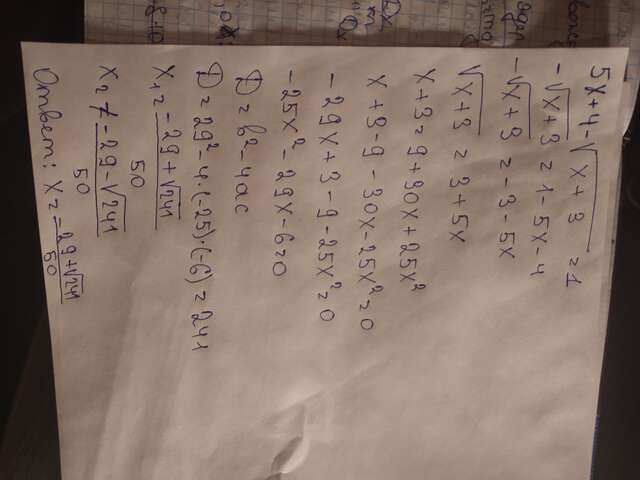 5x+4-√x+3 =1
-√x+3 = 1-5x-4
-√x+3 = -3-5x
√x+3 = 3+5x
x+3=9+30x+25x²
x+3-9-30x-25x²=0
-29x+3-9-25x²=0
-25x²-29x-6=0
D=b²-4ac
D=29²-4·(-25)·(-6)=241
x₁= -29+√241 / 50
x₂ ≠ -29-√241 / 50
Ответ: x₂ = -29+√241 / 50